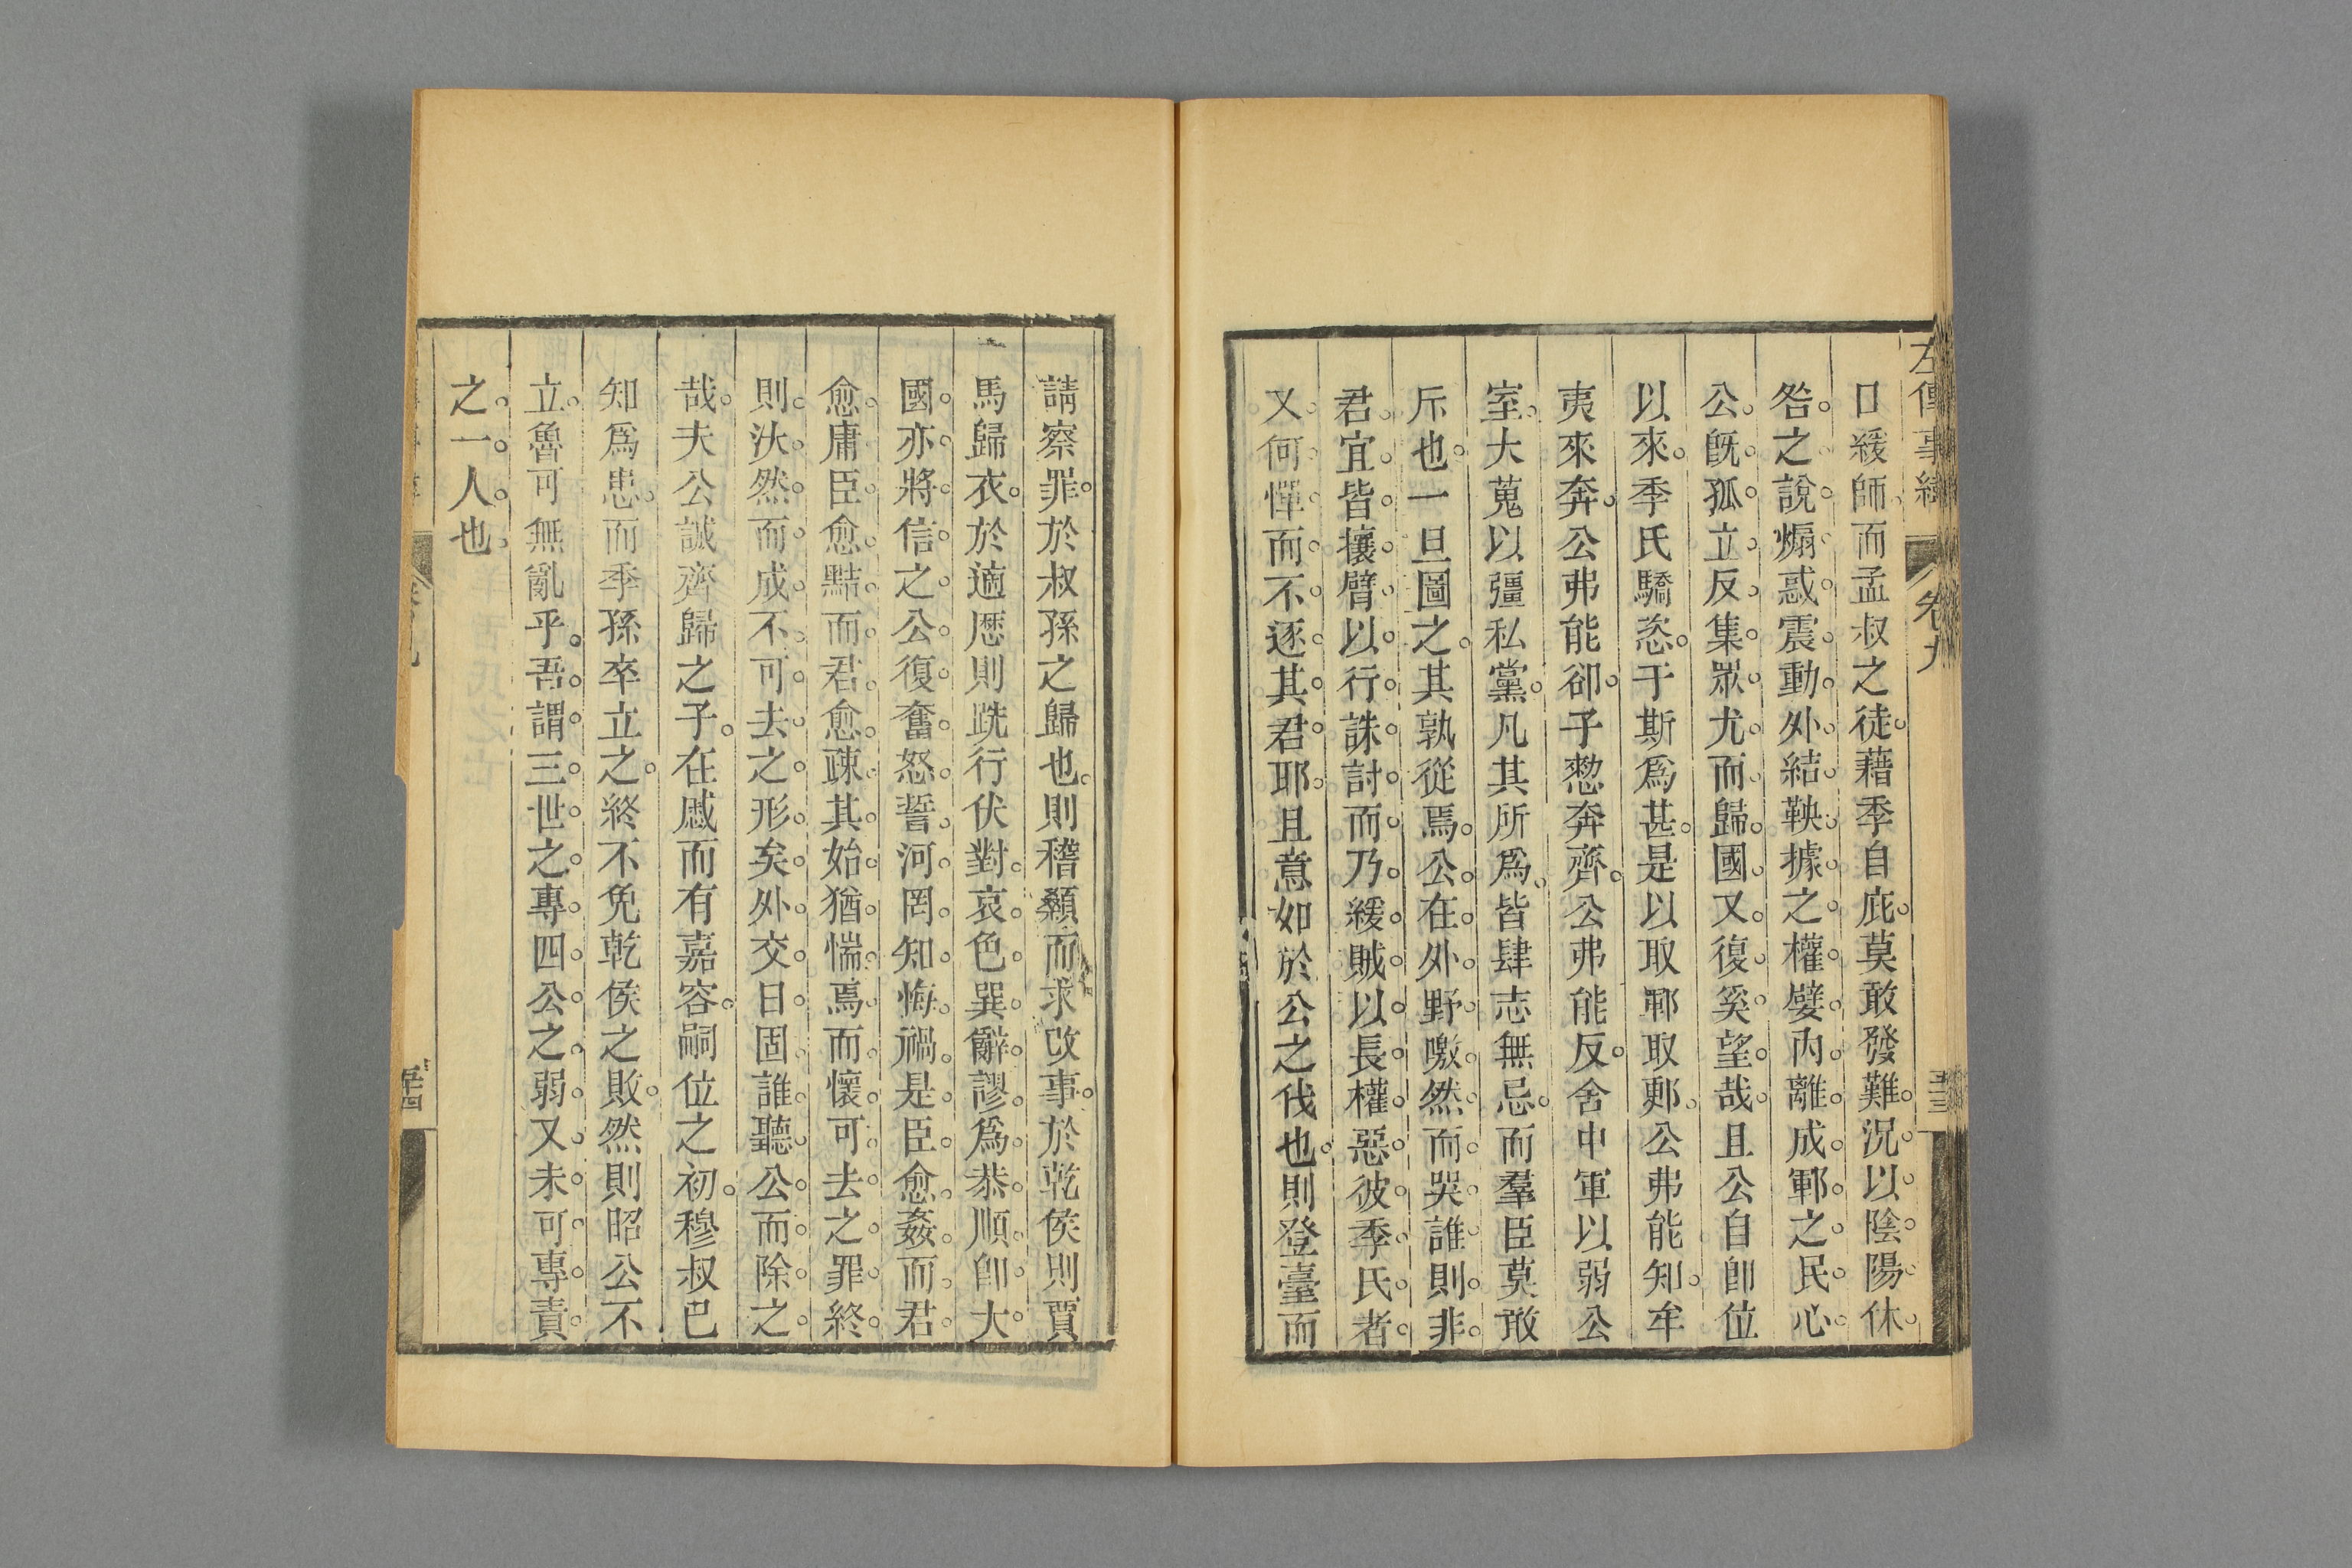 左傳事緯 卷九 五十三
口緩師而孟叔之徒藉季自庇莫敢發難況以陰陽休
咎之說煽惑震動外結鞅據之權嬖內離成鄆之民心
公旣孤立反集眾尤而歸國又復奚望哉且公自卽位
以來季氏驕恣于斯爲甚是以取鄆取郠公弗能知牟
夷來奔公弗能卻子憖奔齊公弗能反舍中軍以弱公
室大蒐以彊私黨凡其所爲皆肆志無忌而羣臣莫敢
斥也一旦圖之其孰從焉公在外野噭然而哭誰則非
君宜皆攘臂以行誅討而乃緩賊以長權惡彼季氏者
又何憚而不逐其君耶且意如於公之伐也則登臺而
請察罪於叔孫之歸也則稽顙而求改事於乾侯則賈
馬歸衣於適歷則跣行伏對哀色巽辭謬爲恭順卽大
國亦將信之公復奮怒誓河罔知悔禍是臣愈姦而君
愈庸臣愈黠而君愈疎其始猶惴焉而懷可去之罪終
則決然而成不可去之形矣外交日固誰聽公而除之
哉夫公誠齊歸之子在慼而有嘉容嗣位之初穆叔已
知爲患而季孫卒立之終不免乾侯之敗然則昭公不
立魯可無亂乎吾謂三世之專四公之弱又未可專責
之一人也